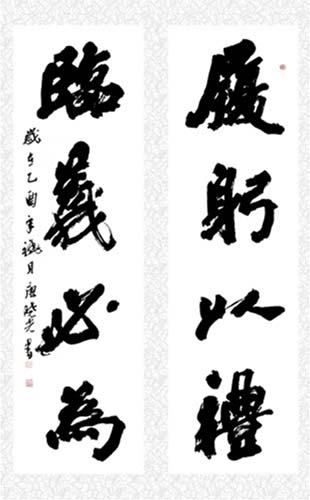 履躬以禮
臨義必為
歲在乙酉年福月唐曉光書